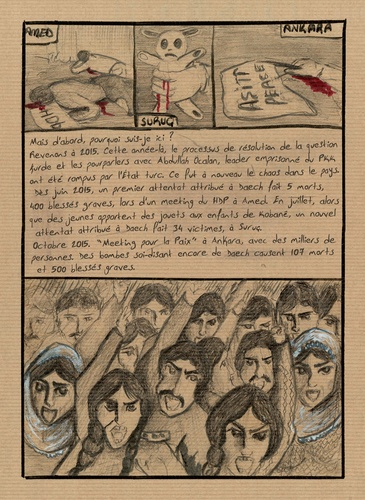 AMED
ANKARA
AŞITI
PEACE
SURUÇ
Mais d'abord, pourquoi suis-je ici ?
Revenons à 2015. Cette année-là, le processus de résolution de la question
kurde et les pourparlers avec Abdullah Öcalan, leader emprisonné du PKK,
ont été rompus par l'État turc. Ce fut à nouveau le chaos dans le pays.
Dès juin 2015, un premier attentat attribué à Daech fait 5 morts,
400 blessés graves, lors d'un meeting du HDP à Amed. En juillet, alors
que des jeunes apportent des jouets aux enfants de Kobanê, un nouvel
attentat attribué à Daech fait 34 victimes, à Suruç.
Octobre 2015. "Meeting pour la Paix" à Ankara, avec des milliers de
personnes. Des bombes soi-disant encore de Daech causent 107 morts
et 500 blessés graves.